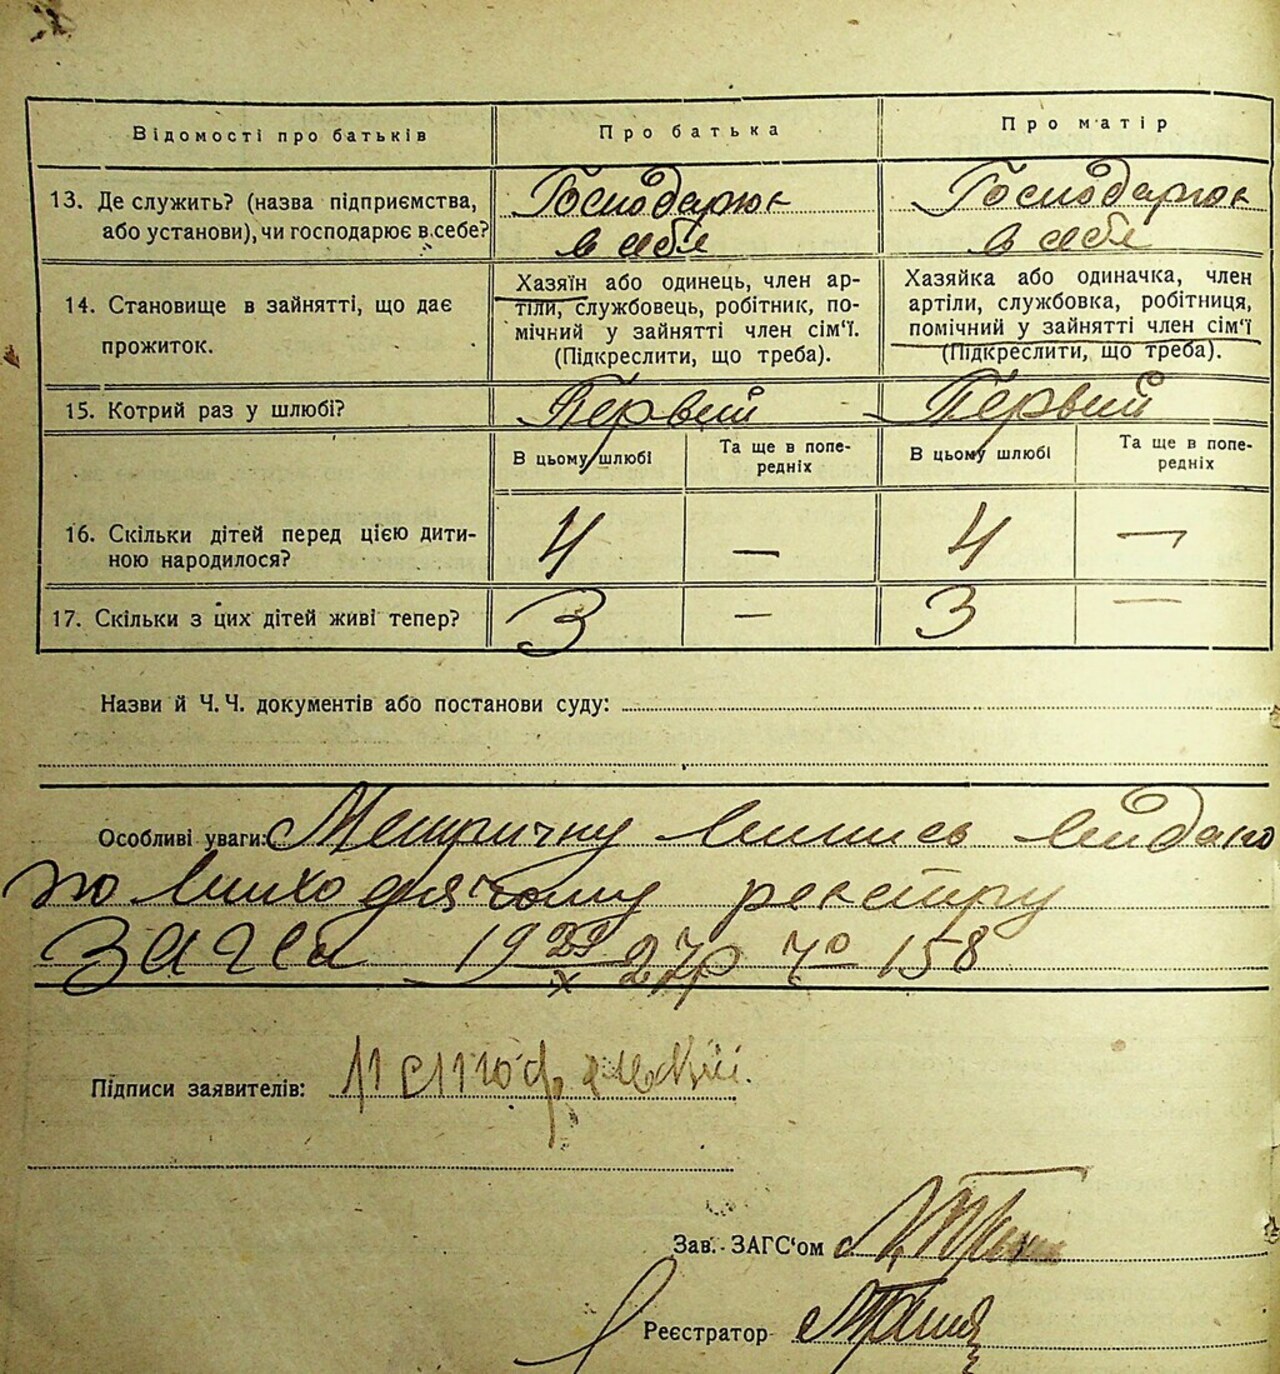 Відомості про батьків Про батька Про матір
13. Де служить? (назва підприємства, Господарює Господарює
або установи), чи господарює в себе? в себе в себе
14. Становище в зайнятті, що дає
прожиток.
Хазяїн або одинець, член ар-
тіли, службовець, робітник, по-
мічний у зайнятті член сім'ї.
(Підкреслити, що треба).
Хазяйка або одиначка, член
артіли, службовка, робітниця,
помічний у зайнятті член сім'ї
(Підкреслити, що треба).
15. Котрий раз у шлюбі? Первий Первий
В цьому шлюбі Та ще в попе-
редніх В цьому шлюбі Та ще в попе-
редніх
16. Скільки дітей перед цією дити-
ною народилося? 4 — 4 —
17. Скільки з цих дітей живі тепер? 3 — 3 —
Назви й Ч. Ч. документів або постанови суду:
Особливі уваги: Метричну випись видано
по виходячому реєстру
загса 19 29/X 27р № 158
Підписи заявителів:
Зав. ЗАГС'ом
Реєстратор